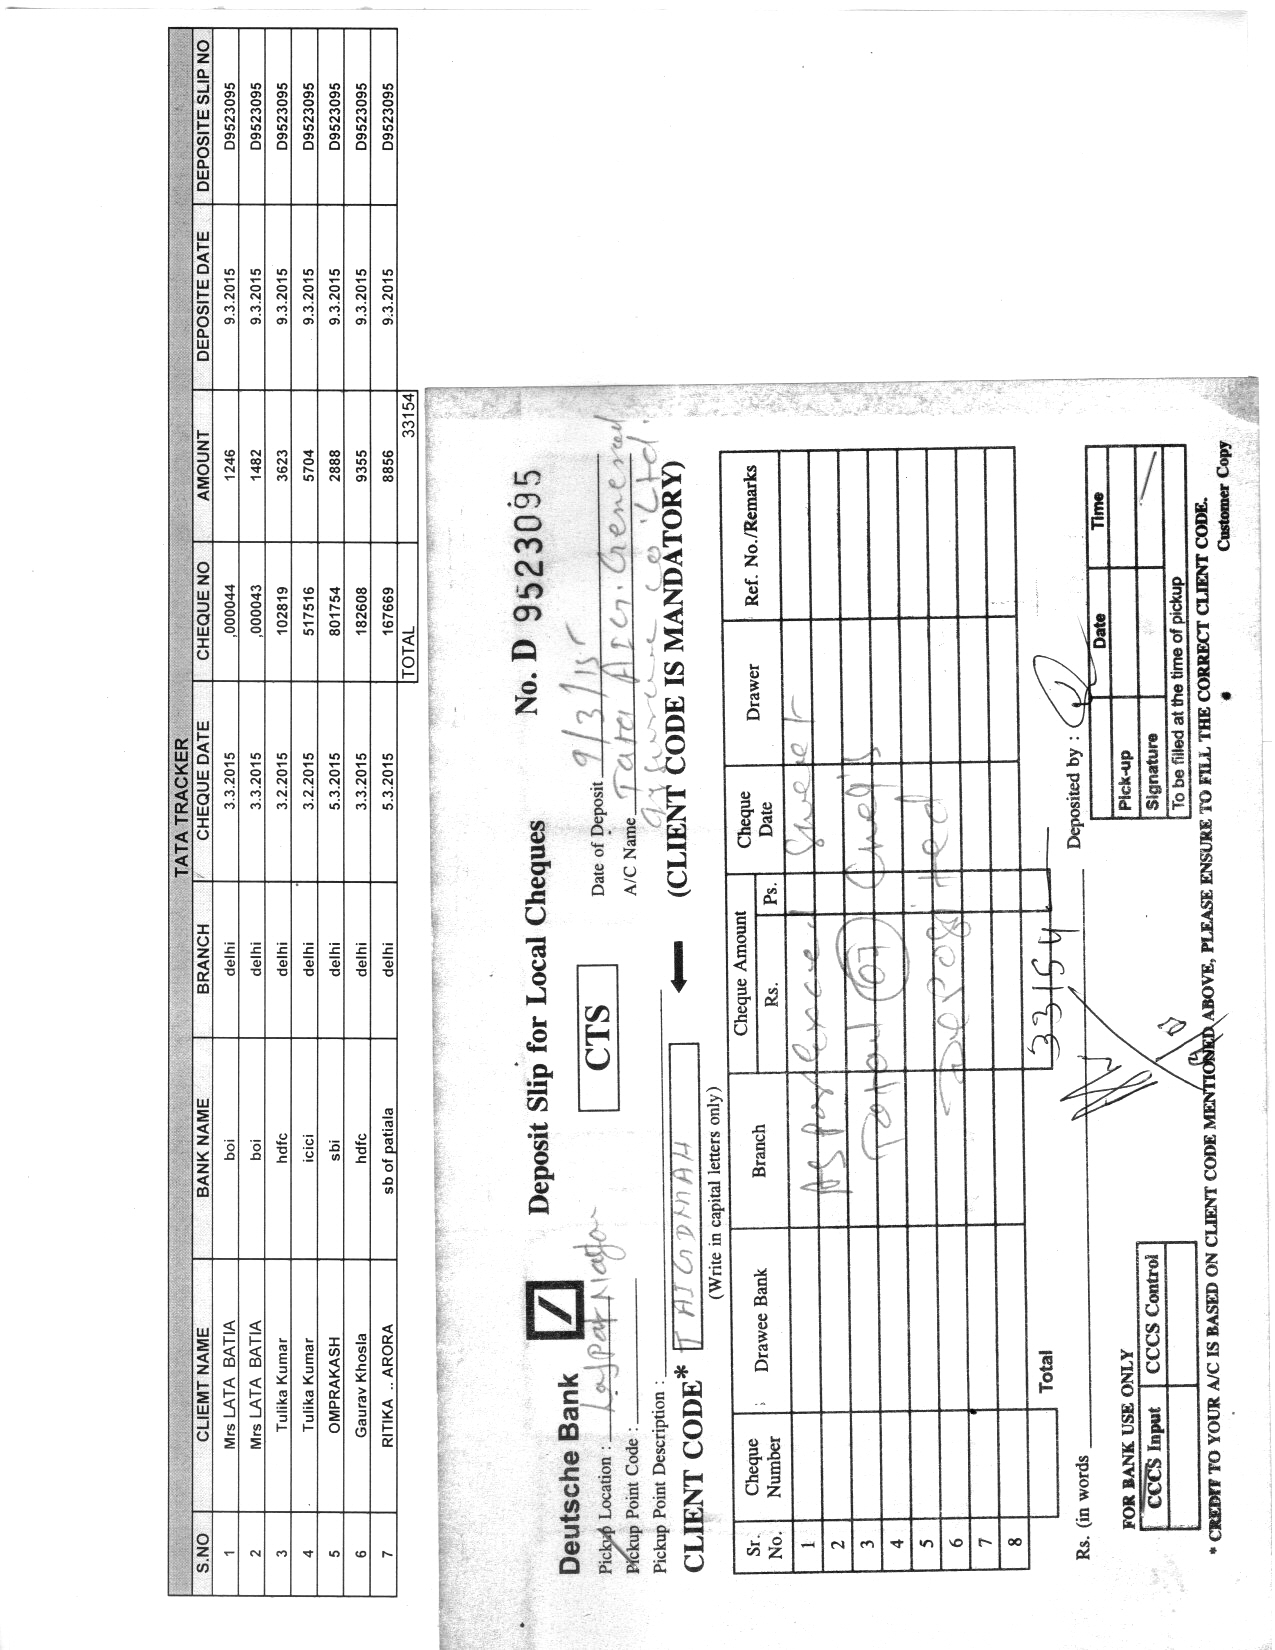 TATA TRACKER
S.NO CLIEMT NAME BANK NAME BRANCH CHEQUE DATE CHEQUE NO AMOUNT DEPOSITE DATE DEPOSITE SLIP NO
1 Mrs LATA BATIA boi delhi 3.3.2015 ,000044 1246 9.3.2015 D9523095
2 Mrs LATA BATIA boi delhi 3.3.2015 ,000043 1482 9.3.2015 D9523095
3 Tulika Kumar hdfc delhi 3.2.2015 102819 3623 9.3.2015 D9523095
4 Tulika Kumar icici delhi 3.2.2015 517516 5704 9.3.2015 D9523095
5 OMPRAKASH sbi delhi 5.3.2015 801754 2888 9.3.2015 D9523095
6 Gaurav Khosla hdfc delhi 3.3.2015 182608 9355 9.3.2015 D9523095
7 RITIKA .. ARORA sb of patiala delhi 5.3.2015 167669 8856 9.3.2015 D9523095
TOTAL 33154
Deutsche Bank Deposit Slip for Local Cheques No. D 9523095
Pickup Location : Lajpat Nagar CTS Date of Deposit 9/3/15
Pickup Point Code : A/C Name Tata AIG. General
Pickup Point Description : Insurance Co. Ltd.
CLIENT CODE* TAIGDMAH (CLIENT CODE IS MANDATORY)
(Write in capital letters only)
Sr. No. Cheque Number Drawee Bank Branch Cheque Amount Rs. Ps. Cheque Date Drawer Ref. No./Remarks
1 As per excel sheet
2
3 Total 07 Cheq's
4
5
6 Deposited
7
8
Total 33154
Rs. (in words Deposited by :
FOR BANK USE ONLY
CCCS Input CCCS Control
Date Time
Pick-up
Signature
To be filled at the time of pickup
* CREDIT TO YOUR A/C IS BASED ON CLIENT CODE MENTIONED ABOVE, PLEASE ENSURE TO FILL THE CORRECT CLIENT CODE.
Customer Copy